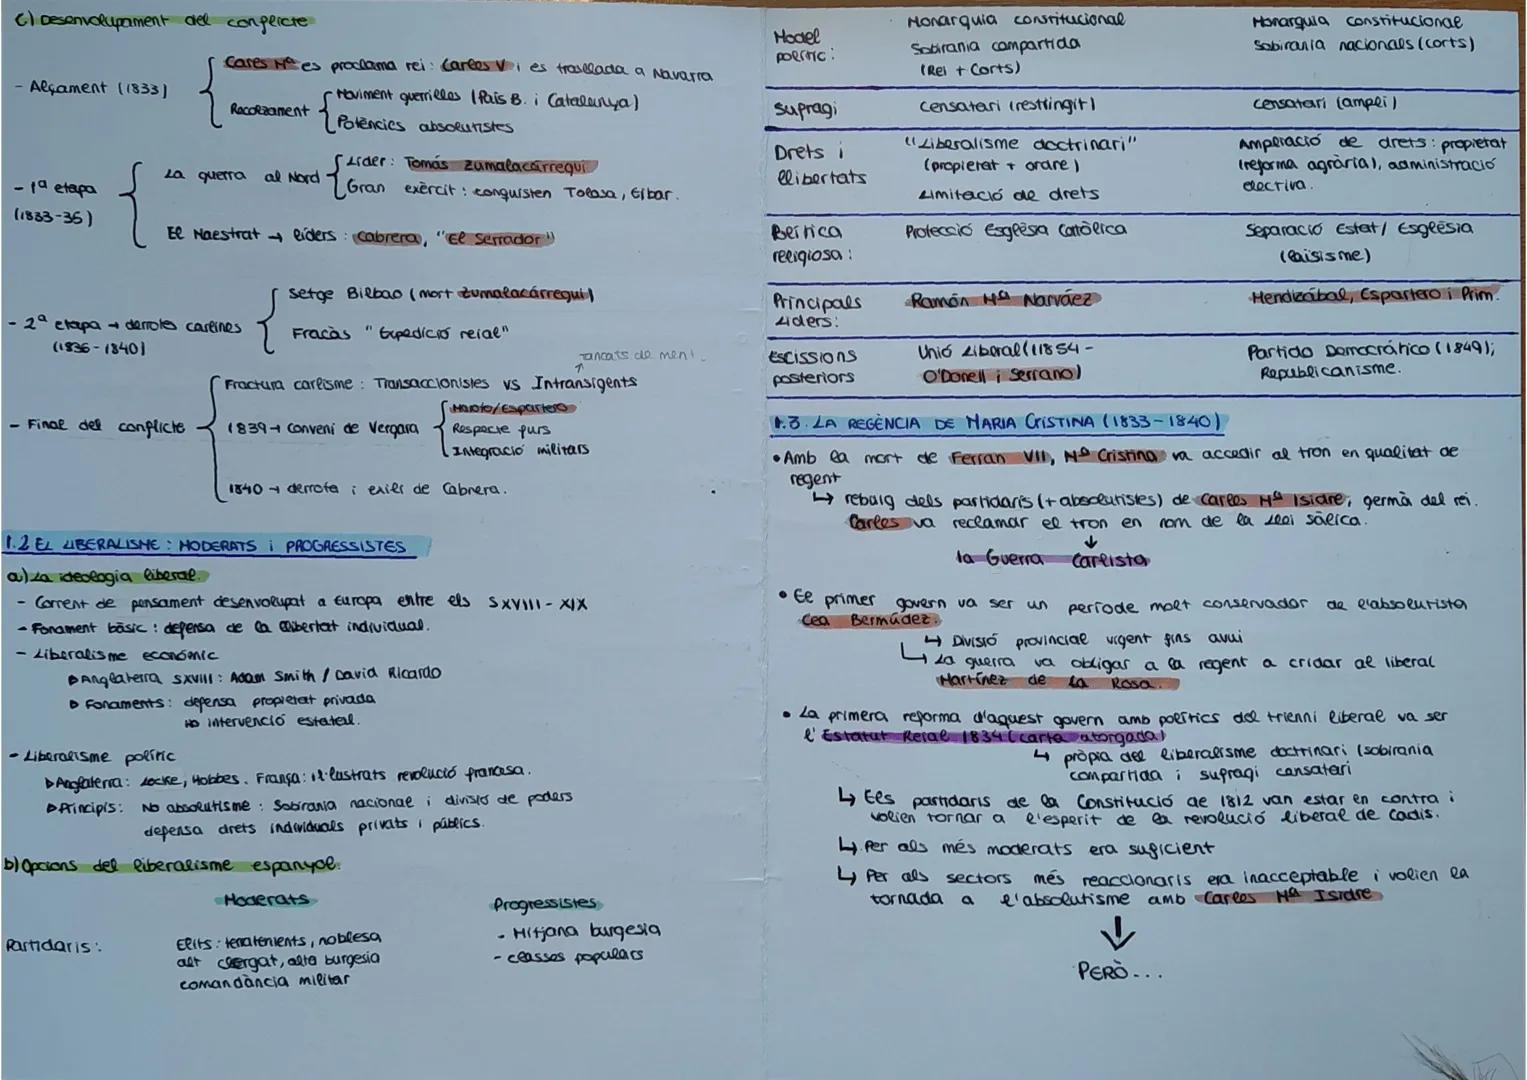 c) Desenvolupament del conflicte
- Alçament (1833)
Carles Mª es proclama rei: Carles V i es trasllada a Navarra
Recolzament
Moviment guerrilles (País B. i Catalunya)
Potències absolutistes
- 1ª etapa
(1833-35)
La guerra al Nord
Líder: Tomás Zumalacárregui
Gran exèrcit: conquisten Tolosa, Eibar.
El Maestrat → líders: Cabrera, "El Serrador"
- 2ª etapa → derrotes carlines
(1836-1840)
Setge Bilbao (mort Zumalacárregui)
Fracàs "Expedició reial"
Tancats de ment.
- Final del conflicte
Fractura carlisme: Transaccionistes vs Intransigents
1839 → Conveni de Vergara
Maroto/Espartero
Respecte furs
Integració militars
1840 → derrota i exili de Cabrera.
1.2 EL LIBERALISME: MODERATS i PROGRESSISTES
a) La ideologia liberal.
- Corrent de pensament desenvolupat a Europa entre els S XVIII - XIX
- Fonament bàsic: defensa de la llibertat individual.
- Liberalisme econòmic
▷ Anglaterra SXVIII: Adam Smith / David Ricardo
▷ Fonaments: defensa propietat privada
no intervenció estatal.
- Liberalisme polític
▷ Anglaterra: Locke, Hobbes. França: il·lustrats revolució francesa.
▷ Principis: No absolutisme: Sobirania nacional i divisió de poders
defensa drets individuals privats i públics.
b) Opcions del liberalisme espanyol.
Moderats
Progressistes
Partidaris:
Elits: terratenients, noblesa
alt clergat, alta burgesia
comandància militar
- Mitjana burgesia
- classes populars
Model
polític:
Monarquia constitucional
Sobirania compartida
(Rei + Corts)
Monarquia constitucional
Sobirania nacionals (corts)
Sufragi
Censatari (restringit)
Censatari (ampli)
Drets i
llibertats
"Liberalisme doctrinari"
(propietat + ordre)
Limitació de drets
Ampliació de drets: propietat
(reforma agrària), administració
electiva.
religiosa:
Protecció Església Catòlica
Separació Estat / Església
(laïsisme)
Principals
Líders:
Ramón Mª Narváez
Mendizábal, Espartero i Prim.
Escissions
posteriors
Unió Liberal (11854 -
O'Donell i Serrano)
Partido Democrático (1849);
Republicanisme.
1.3. LA REGÈNCIA DE MARIA CRISTINA (1833-1840)
• Amb la mort de Ferran VII, Mª Cristina va accedir al tron en qualitat de
regent
↳ rebuig dels partidaris (+ absolutistes) de Carles Mª Isidre, germà del rei.
Carles va reclamar el tron en nom de la Llei sàlica.
↓
la Guerra Carlista
• El primer govern va ser un període molt conservador de l'absolutista
Cea Bermúdez.
↳ Divisió provincial vigent fins avui
↳ La guerra va obligar a la regent a cridar al liberal
Martínez de La Rosa.
• La primera reforma d'aquest govern amb polítics del trienni liberal va ser
l'Estatut Reial 1834 (carta atorgada)
↳ pròpia del liberalisme doctrinari (sobirania
compartida i sufragi censatari
↳ Els partidaris de la Constitució de 1812 van estar en contra i
volien tornar a l'esperit de la revolució liberal de Cadis.
↳ Per als més moderats era suficient
↳ Per als sectors més reaccionaris era inacceptable i volien la
tornada a l'absolutisme amb Carles Mª Isidre
↓
PERÒ...